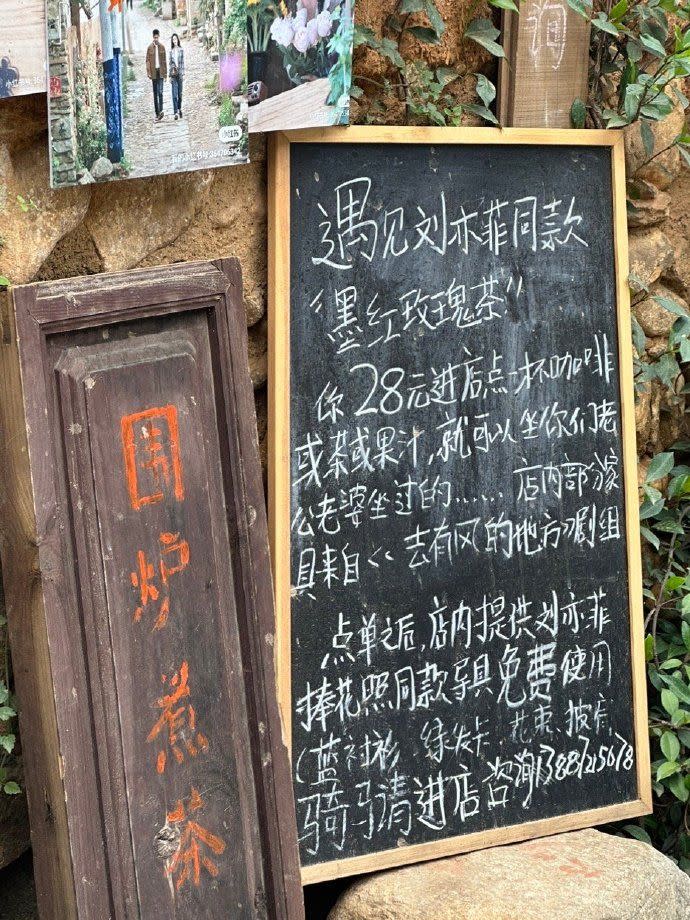 询
小红书
遇见刘亦菲同款
“墨红玫瑰茶”
你28元进店点一杯咖啡
或茶或果汁,就可以坐你们老
公老婆坐过的……店内部分家
具来自<<去有风的地方>>剧组
点单之后,店内提供刘亦菲
捧花照同款导具免费使用
(蓝衬衫 绿发卡 花束、披肩,
骑马请进店咨询
围炉煮茶